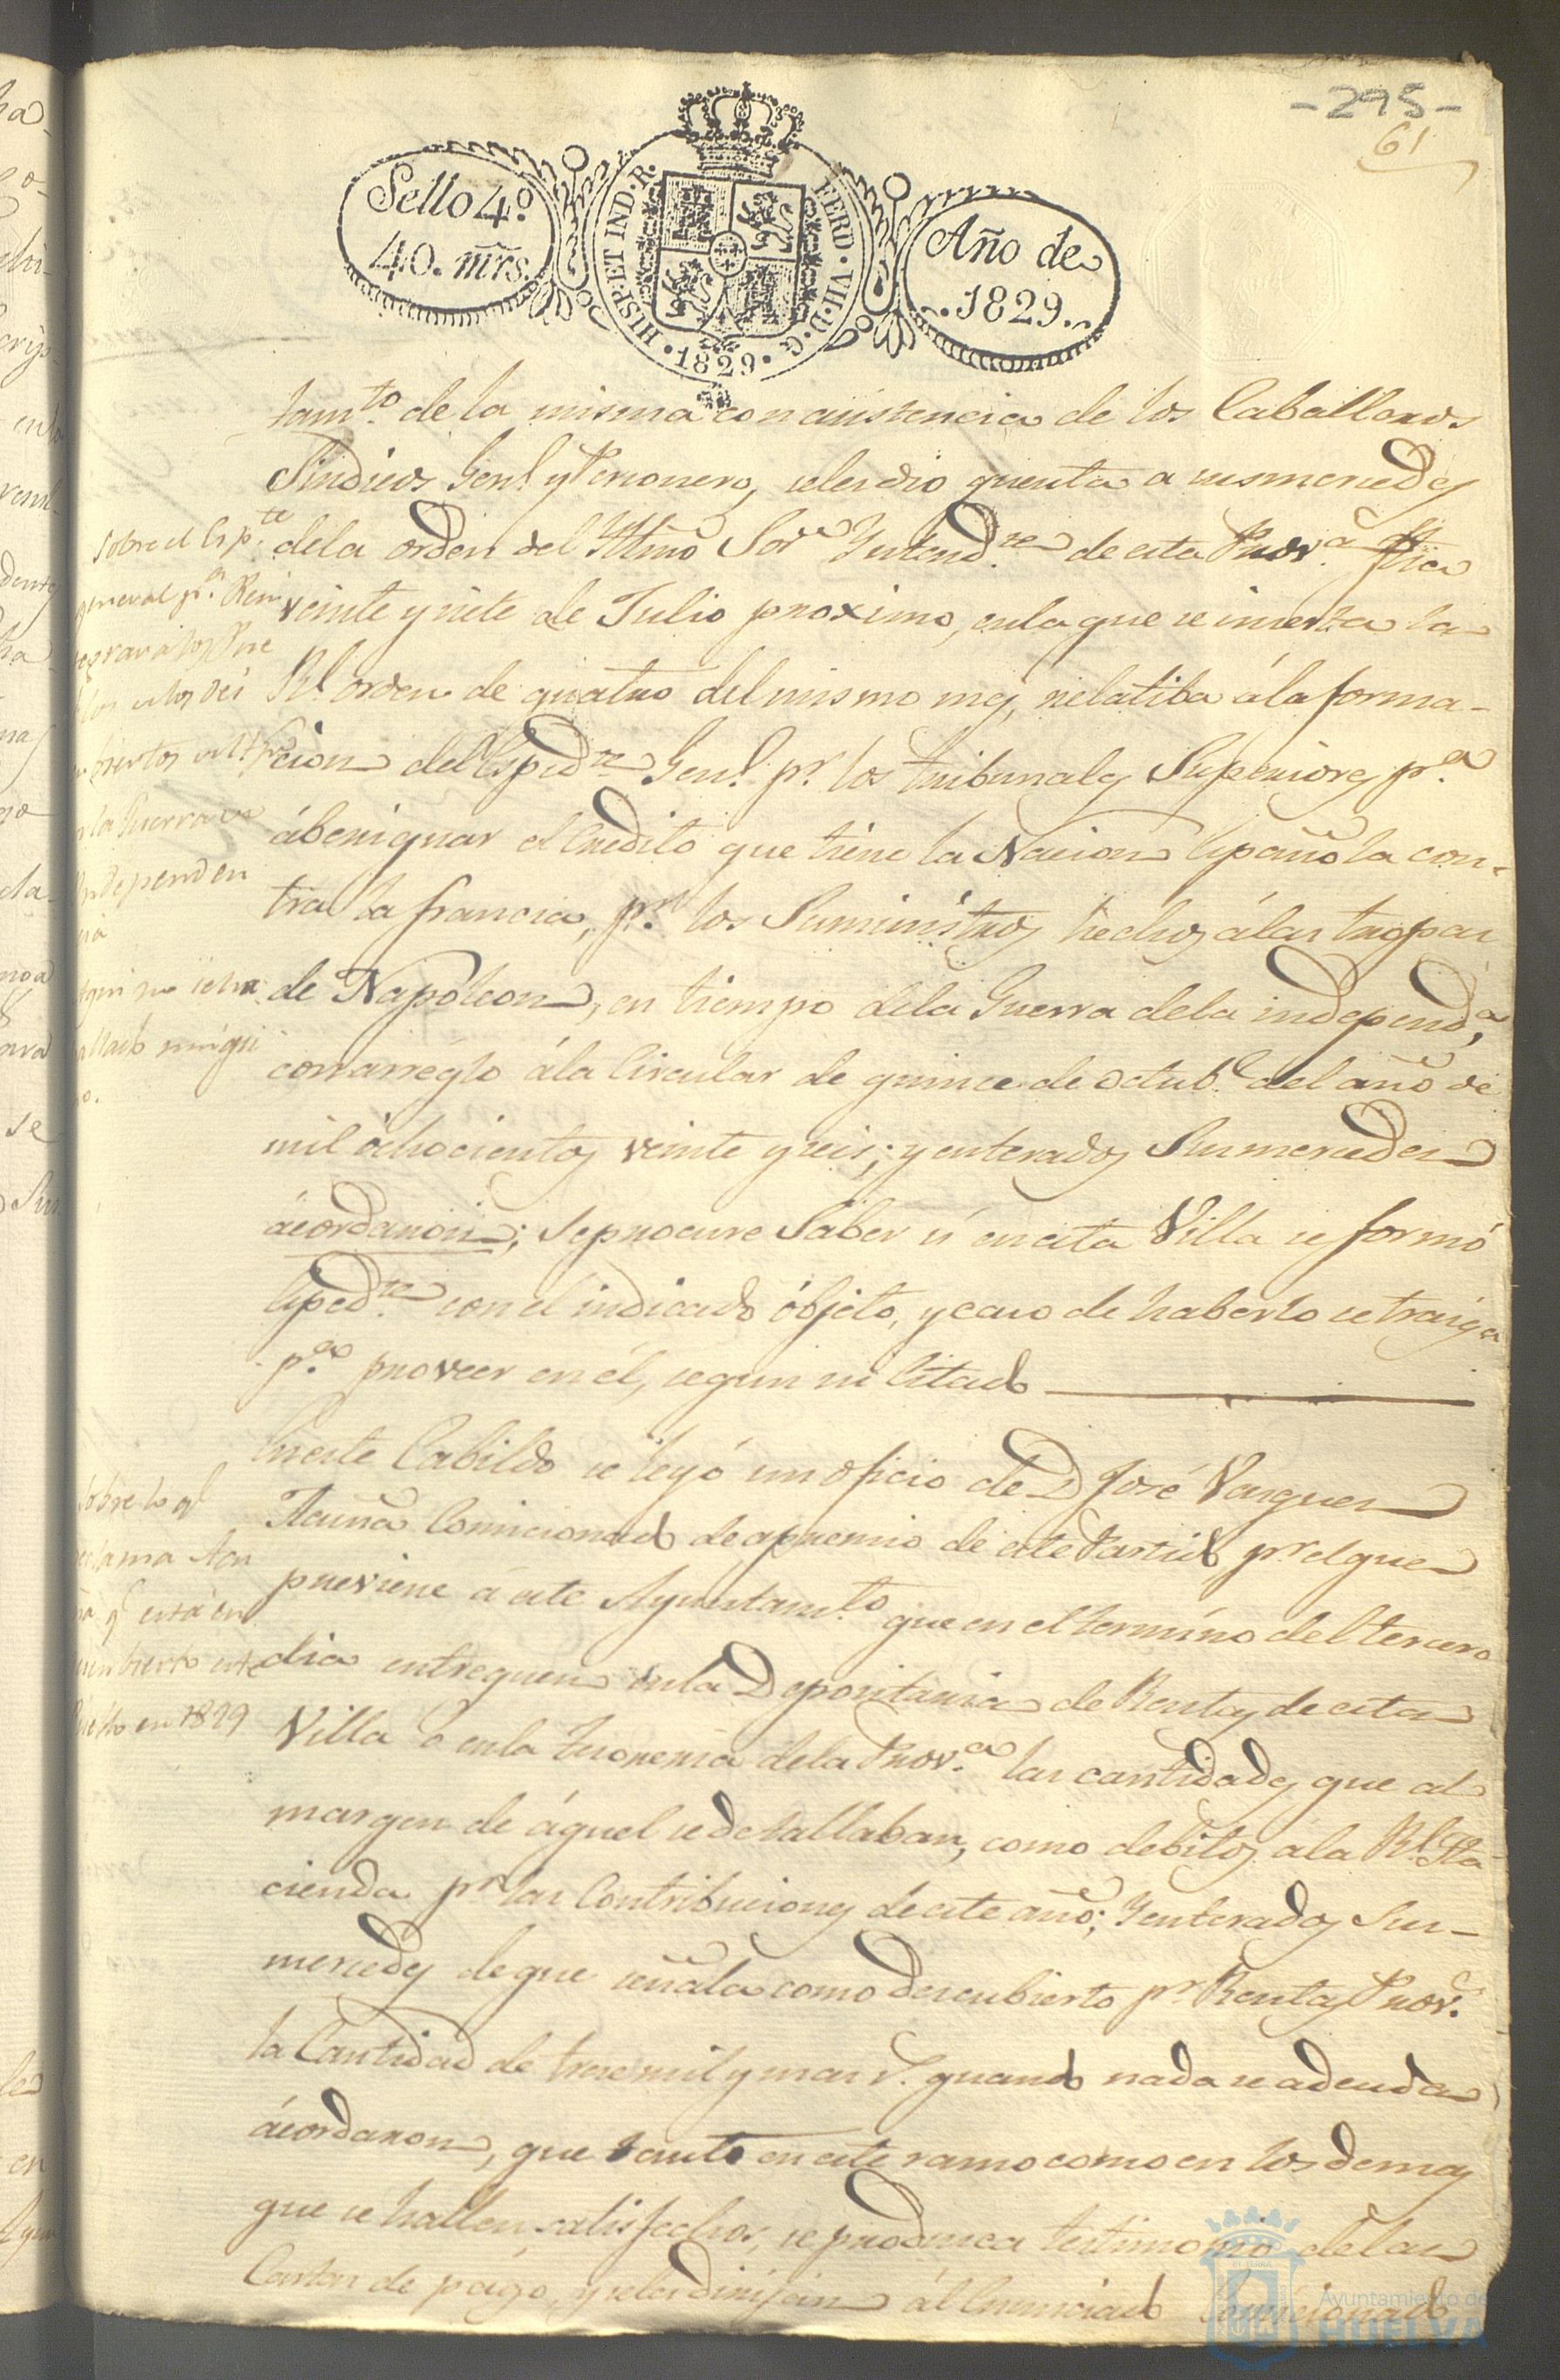 -295-
61
Sello 4.º
40. mrs.
HISP. ET IND. R.
FERD. VII. D. G.
1829.
Año de
1829.
tam.to de la misma con asistencia de los Caballeros
Sindicos Gen.l y Personero, seles dio quenta a susmercedes
dela orden del Yltmo Sor Yntend.te de esta Prov.a fha
veinte y siete de Julio proximo, enla que se inserta la
R.l orden de quatro del mismo mes, relatiba á la forma-
cion del Esped.te Gen.l p.r los tribunales Superiores p.a
ábeniguar el Credito que tiene la Nacion Española con-
tra la francia, p.r los Suministros hechos álas tropas
de Napoleon, en tiempo dela Guerra dela independ.a
con arreglo ála Circular de quince de Octub.e del año de
mil ochocientos veinte y seis; y enterados Susmercedes
ácordaron; se procure Saber si en esta Villa se formó
Esped.te con el indicado objeto, y caso de haberlo se traiga
p.a proveer en él, segun su estado
Sobre el Esp.te
general p.a Rein
tegrar a los Pue
blos
la Guerra
Independen
cia
Aqui no se ha
allado ningu
no.
En este Cabildo se leyó un oficio de D José Vasquez
Acuña Comicionado de apremio de este Partido p.r el que
previene á este Ayuntam.to que en el termino del tercero
dia entreguen enla Depositaria de Rentas de esta
Villa o enla tesoreria dela Prov.a las cantidades que al
margen de áquel se detallaban, como debitos ala R.l Ha-
cienda p.r las Contribuciones de este año; Y enterados Sus-
mercedes de que señala como descubierto p.r Rentas Prov.s
la Cantidad de trese mil y mas r.s quando nada se adeuda
ácordaron, que tanto en este ramo como en los demas
que se hallen satisfechos, se produsca testimonio delas
Cartas de pago, y se las dirijan ál Enunciado Comicionado
Sobre lo q.e
reclama Acu
ña q.e está en
cubierto este
Pueblo en 1829
Ayuntamiento de
HUELVA